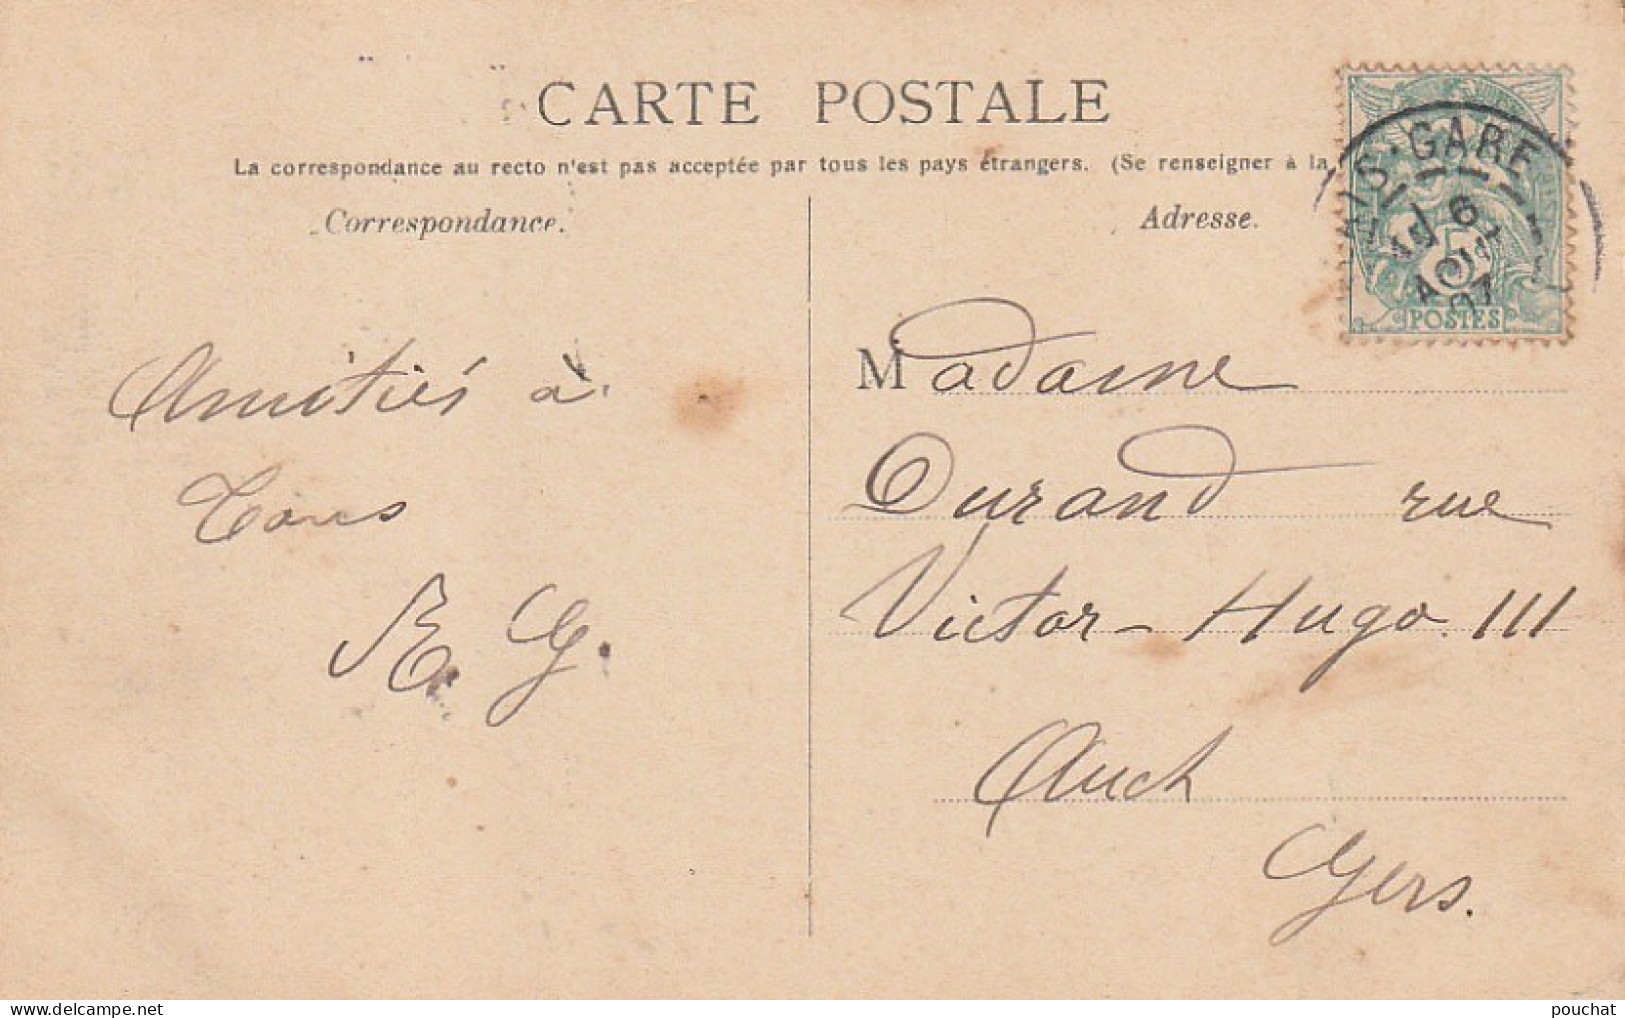 CARTE POSTALE
La correspondance au recto n'est pas acceptée par tous les pays étrangers. (Se renseigner à la
Correspondance.
Adresse.
GARE
6
AOU
07
5
POSTES
Amitiés à
Tous
E. G.
Madame
Durand rue
Victor-Hugo. 111
Auch
Gers.
pouchat
www.delcampe.net